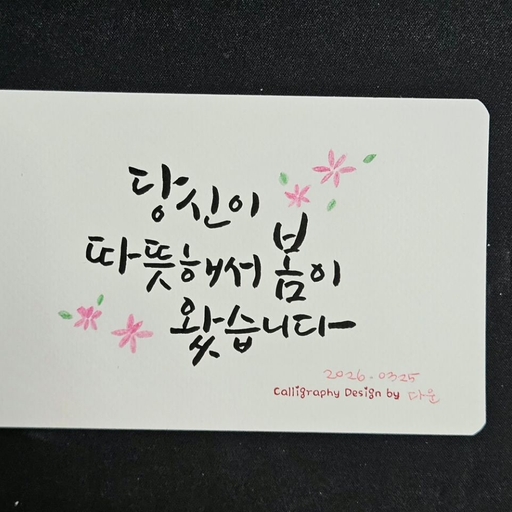 당신이
따뜻해서 봄이
왔습니다
2026.0325
Calligraphy Design by 다운